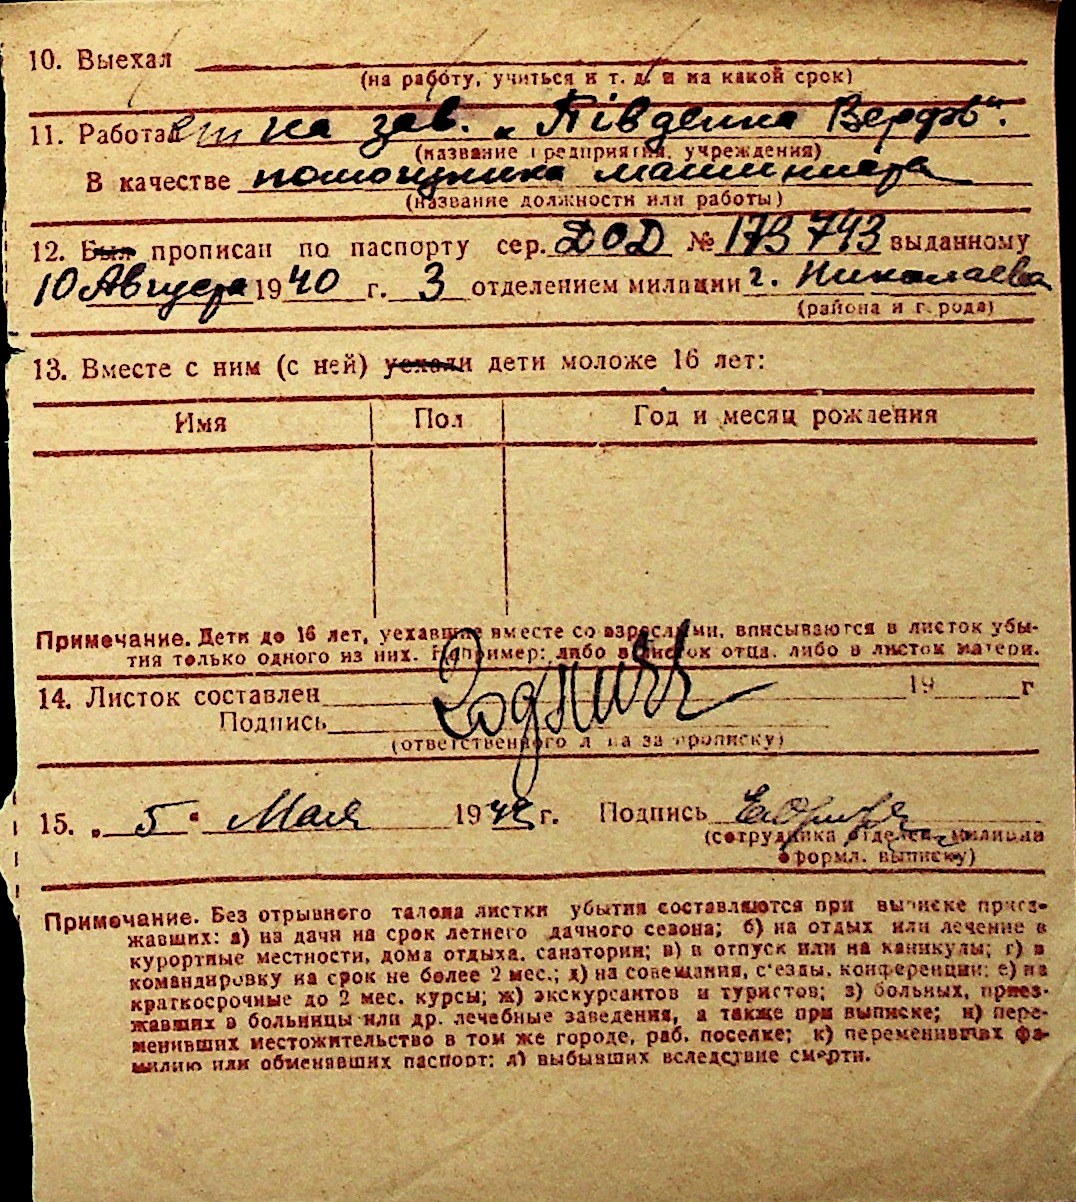 10. Выехал
(на работу, учиться и т. д. и на какой срок)
11. Работает на зав. „Південна Верфь“.
(название предприятия, учреждения)
В качестве помощника машиниста
(название должности или работы)
12. Был прописан по паспорту сер. ДОД № 173743 выданному
10 Августа 1940 г. 3 отделением милиции г. Николаева
(района и города)
13. Вместе с ним (с ней) уехали дети моложе 16 лет:
Имя Пол Год и месяц рождения
Примечание. Дети до 16 лет, уехавшие вместе со взрослыми, вписываются в листок убы-
тия только одного из них. Например: либо в листок отца, либо в листок матери.
14. Листок составлен 19 г
Подпись
(ответственного лица за прописку)
15. „ 5 “ Мая 1942 г. Подпись
(сотрудника отделен. милиции
оформл. выписку)
Примечание. Без отрывного талона листки убытия составляются при выписке приез-
жавших: а) на дачи на срок летнего дачного сезона; б) на отдых или лечение в
курортные местности, дома отдыха, санатории; в) в отпуск или на каникулы; г) в
командировку на срок не более 2 мес.; д) на совещания, с'езды, конференции; е) на
краткосрочные до 2 мес. курсы; ж) экскурсантов и туристов; з) больных, приез-
жавших в больницы или др. лечебные заведения, а также при выписке; и) пере-
менивших местожительство в том же городе, раб. поселке; к) переменивших фа-
милию или обменявших паспорт; л) выбывших вследствие смерти.